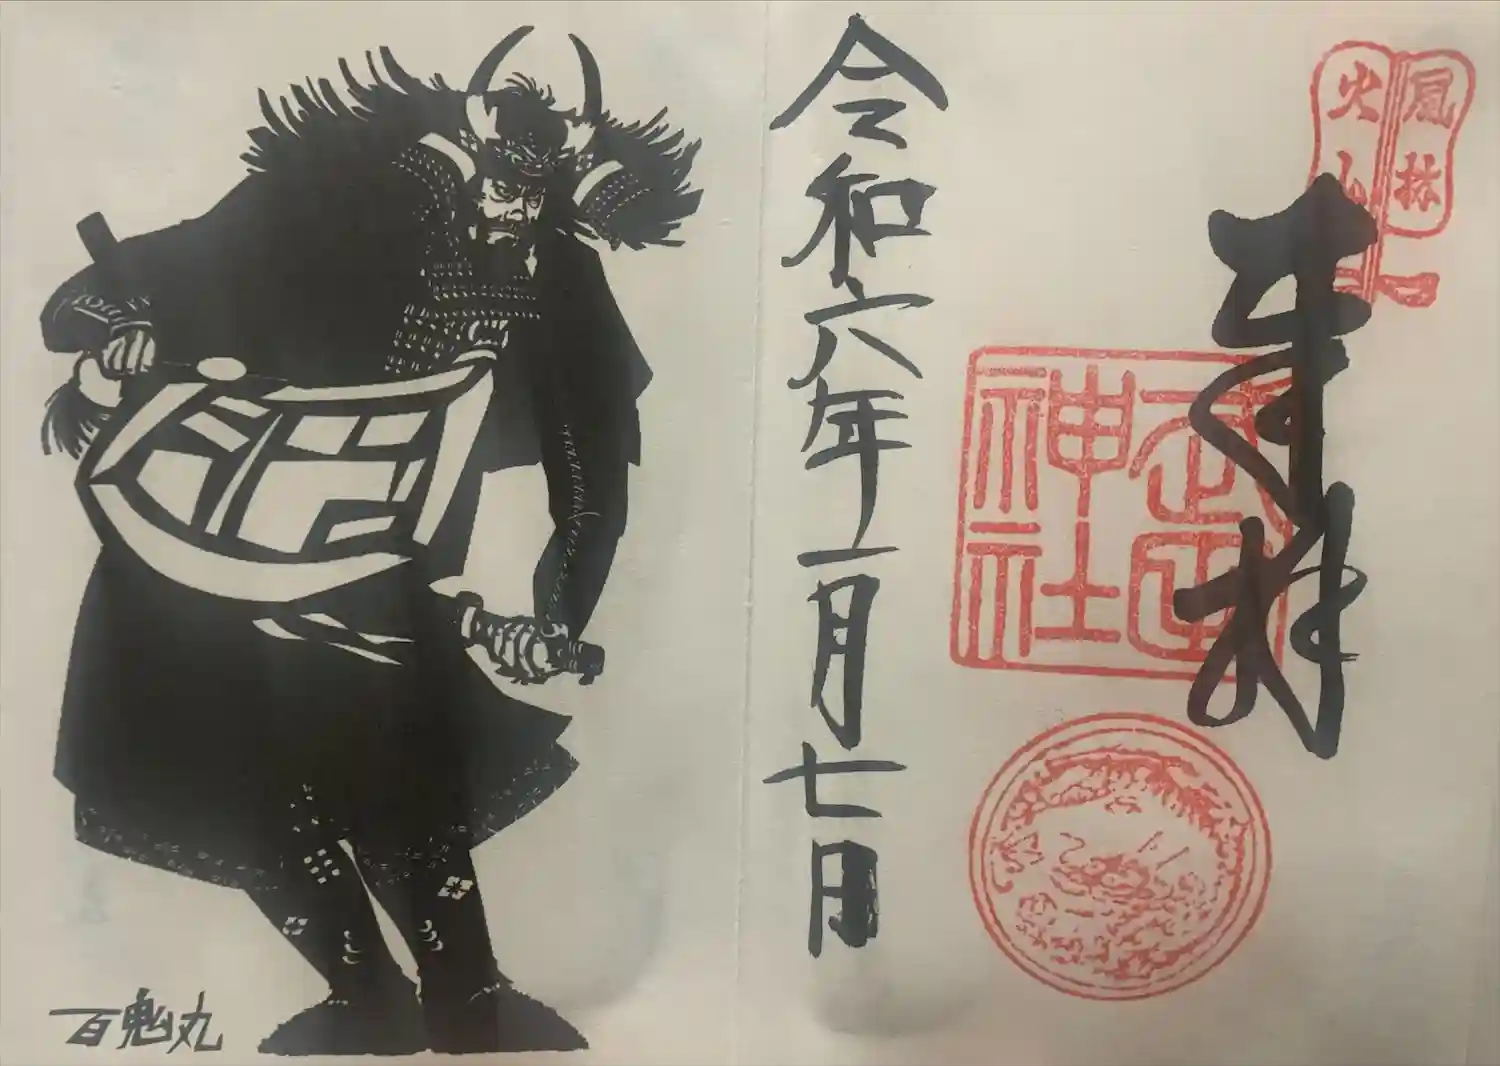 風林
火山
奉拝
武田
神社
令和六年一月七日
百鬼丸